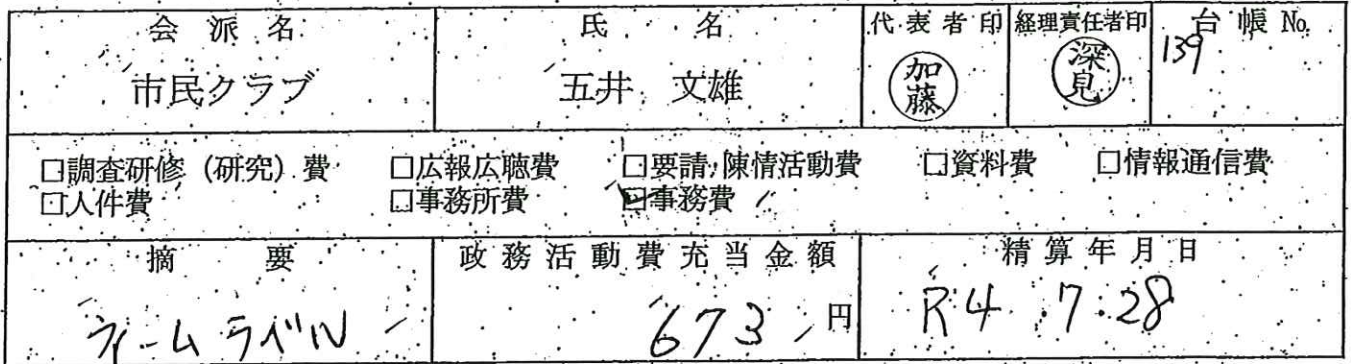 会派名 氏名 代表者印 経理責任者印 台帳No.
市民クラブ 五井 文雄 加藤 深見 139
□調査研修(研究)費 □広報広聴費 □要請・陳情活動費 □資料費 □情報通信費
□人件費 □事務所費 ☑事務費
摘要 政務活動費充当金額 精算年月日
ネームラベル 673円 R4.7.28